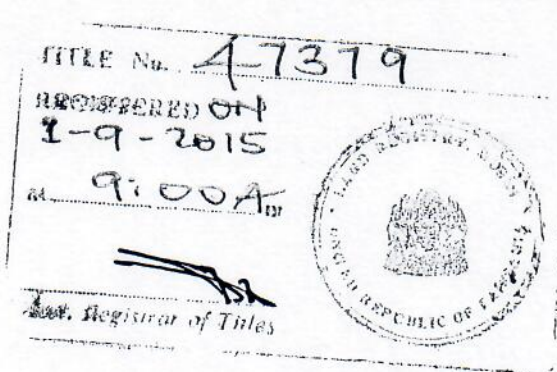 TITLE No. 47379
REGISTERED ON
1-9-2015
At 9:00 Am
Asst. Registrar of Titles
LAND REGISTRY,
UNITED REPUBLIC OF TANZANIA